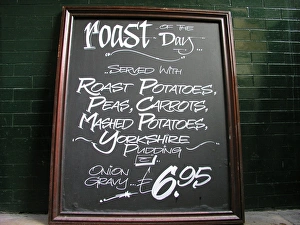 roast OF THE
Day...
..SERVED WITH
ROAST POTATOES,
PEAS, CARROTS,
MASHED POTATOES,
YORKSHIRE
PUDDING
ONION
GRAVY... £6.95